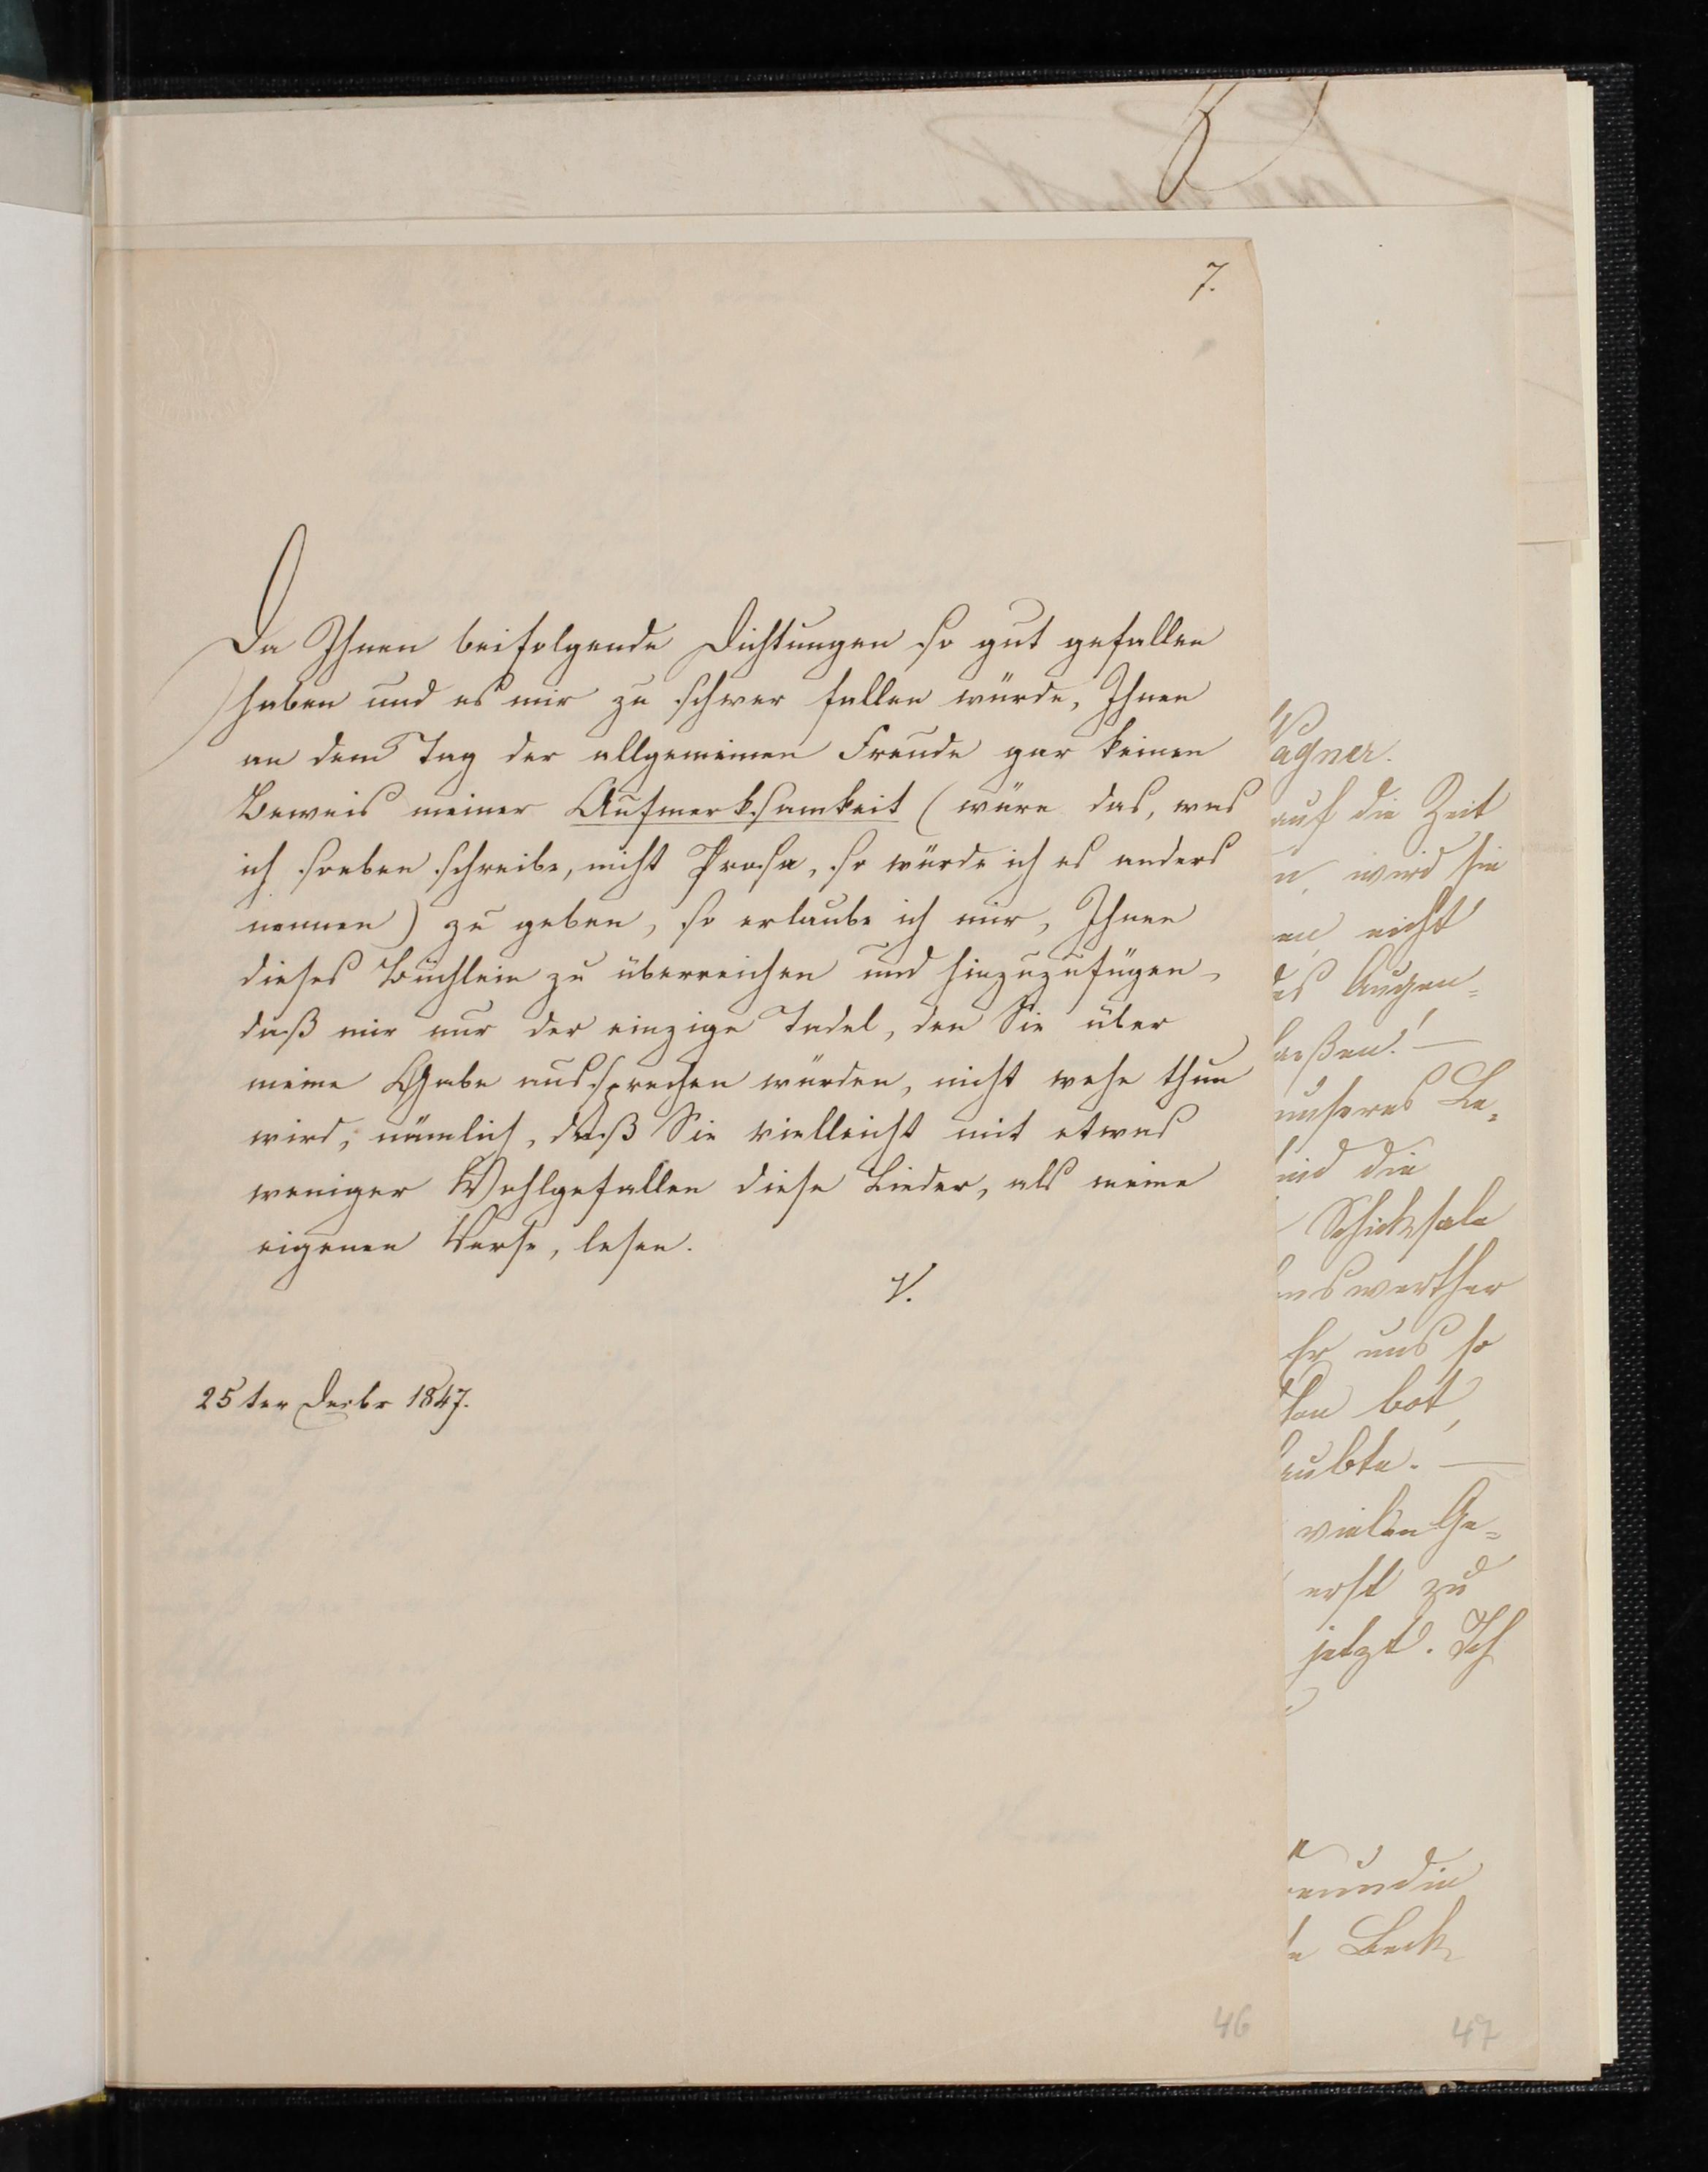 7.
Da Ihnen beifolgende Dichtungen so gut gefallen
haben und es mir zu schwer fallen würde, Ihnen
an dem Tag der allgemeinen Freude gar keinen
Beweis meiner Aufmerksamkeit (wäre das, was
ich soeben schreibe, nicht Prosa, so würde ich es anders
nennen) zu geben, so erlaube ich mir, Ihnen
dieses Büchlein zu überreichen und hinzuzufügen,
daß mir nur der einzige Tadel, den Sie über
meine Gabe aussprechen würden, nicht wehe thun
wird, nämlich, daß Sie vielleicht mit etwas
weniger Wohlgefallen diese Lieder, als meine
eigenen Verse, lesen.
V.
25ter Decbr 1847.
46
Wagner.
auf die Zeit
n, wird sie
nicht
des Augen=
unseres Le=
und die
Schicksale
enswerther
Er uns so
bot,
aubte. —
vielen Ge=
erst zu
jetzt. Ich
eundin
Beck
47